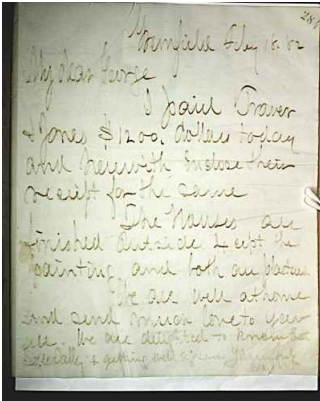 284
July 18. 82
My dear George
I paid Traver
& Jones $1200. dollars today
and herewith enclose their
receipt for the same
The Houses are
finished outside except the
painting, and both are plastered
We are well at home
and send much love to you
all. We are delighted to know that
is getting well